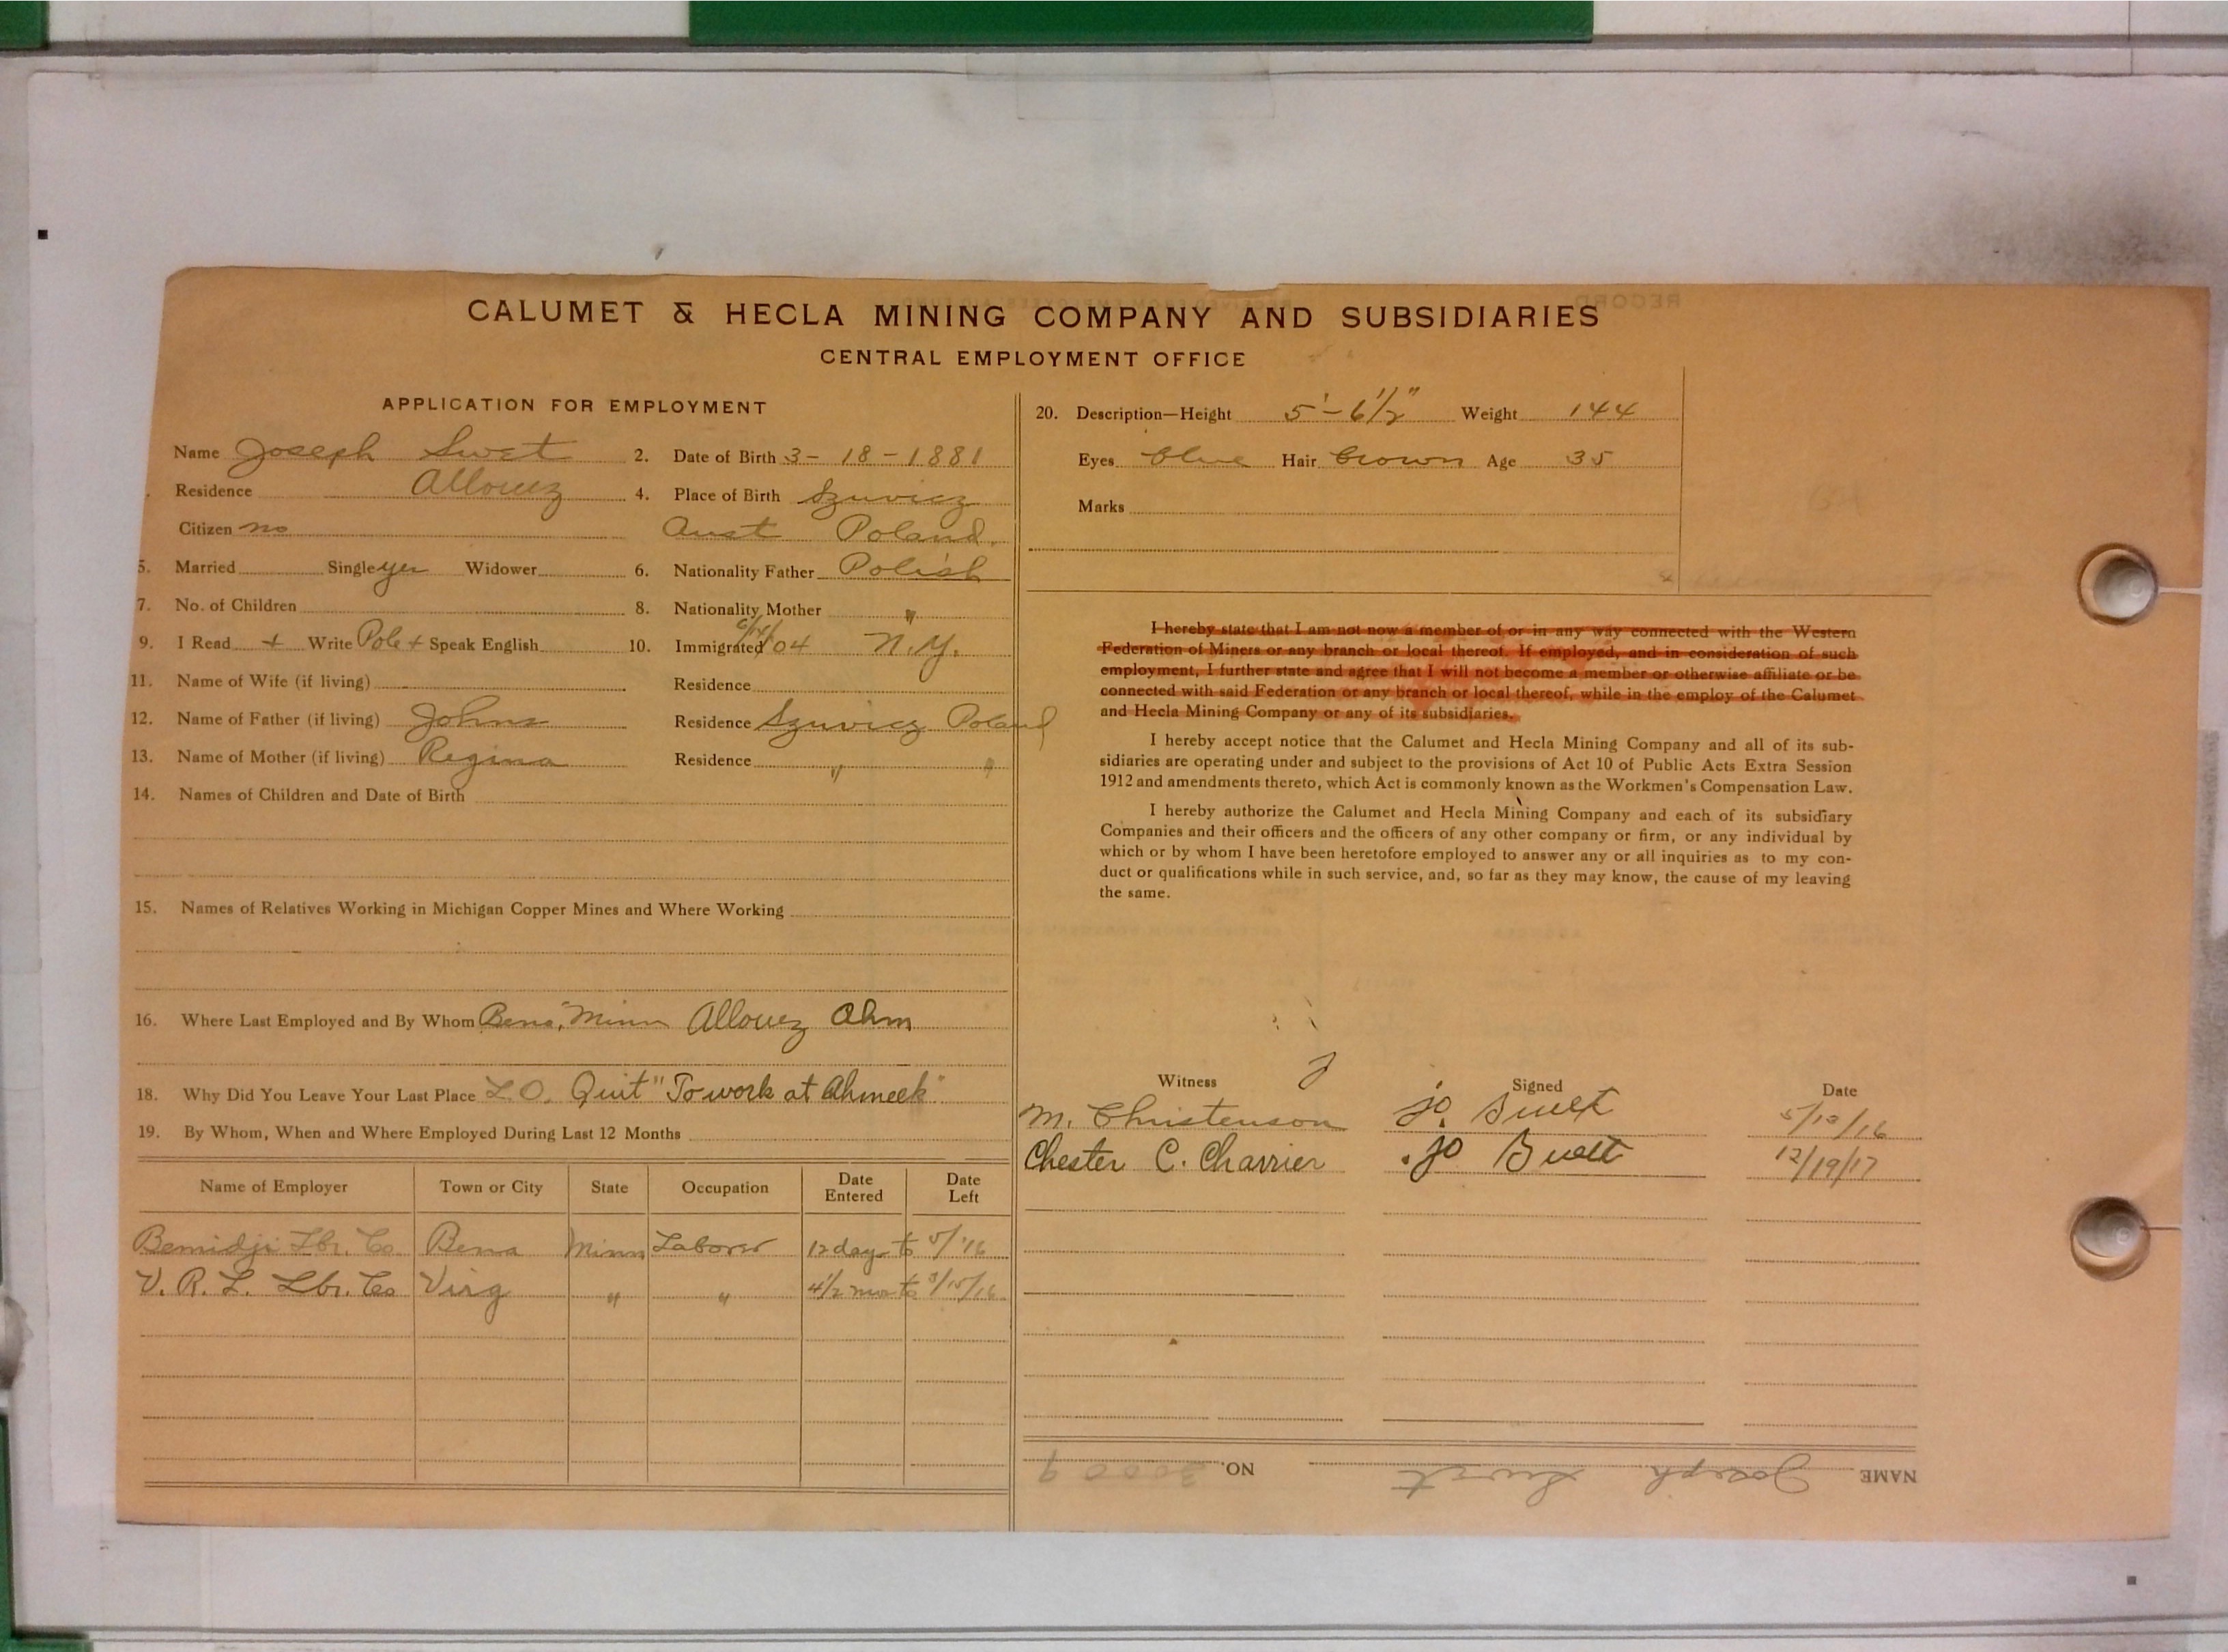 CALUMET & HECLA MINING COMPANY AND SUBSIDIARIES
CENTRAL EMPLOYMENT OFFICE
APPLICATION FOR EMPLOYMENT
Name Joseph Swet
Residence Allouez
Citizen no
5. Married Single yes Widower
7. No. of Children
9. I Read + Write Pole + Speak English
11. Name of Wife (if living)
12. Name of Father (if living) Johns
13. Name of Mother (if living) Regina
14. Names of Children and Date of Birth
2. Date of Birth 3-18-1881
4. Place of Birth Szuvicz
Aust Poland.
6. Nationality Father Polish
8. Nationality Mother "
10. Immigrated 6/14/04 N.Y.
Residence
Residence Szuvicz Poland
Residence " "
15. Names of Relatives Working in Michigan Copper Mines and Where Working
16. Where Last Employed and By Whom Bena, Minn Allouez Ahm
18. Why Did You Leave Your Last Place L.O. Quit "To work at Ahmeek"
19. By Whom, When and Where Employed During Last 12 Months
Name of Employer Town or City State Occupation Date Entered Date Left
Bemidji Lbr. Co Bena Minn Laborer 12 days to 5/'16
V. R. L. Lbr. Co Virg " " 4 1/2 mo to 3/15/16
20. Description—Height 5'-6 1/2" Weight 144
Eyes blue Hair brown Age 35
Marks
I hereby state that I am not now a member of or in any way connected with the Western
Federation of Miners or any branch or local thereof. If employed, and in consideration of such
employment, I further state and agree that I will not become a member or otherwise affiliate or be
connected with said Federation or any branch or local thereof, while in the employ of the Calumet
and Hecla Mining Company or any of its subsidiaries.
I hereby accept notice that the Calumet and Hecla Mining Company and all of its sub-
sidiaries are operating under and subject to the provisions of Act 10 of Public Acts Extra Session
1912 and amendments thereto, which Act is commonly known as the Workmen's Compensation Law.
I hereby authorize the Calumet and Hecla Mining Company and each of its subsidiary
Companies and their officers and the officers of any other company or firm, or any individual by
which or by whom I have been heretofore employed to answer any or all inquiries as to my con-
duct or qualifications while in such service, and, so far as they may know, the cause of my leaving
the same.
Witness Signed Date
M. Christenson jo. Swet 5/10/16
Chester C. Charrier jo Swet 12/19/17
NAME Joseph Swet NO. 30009